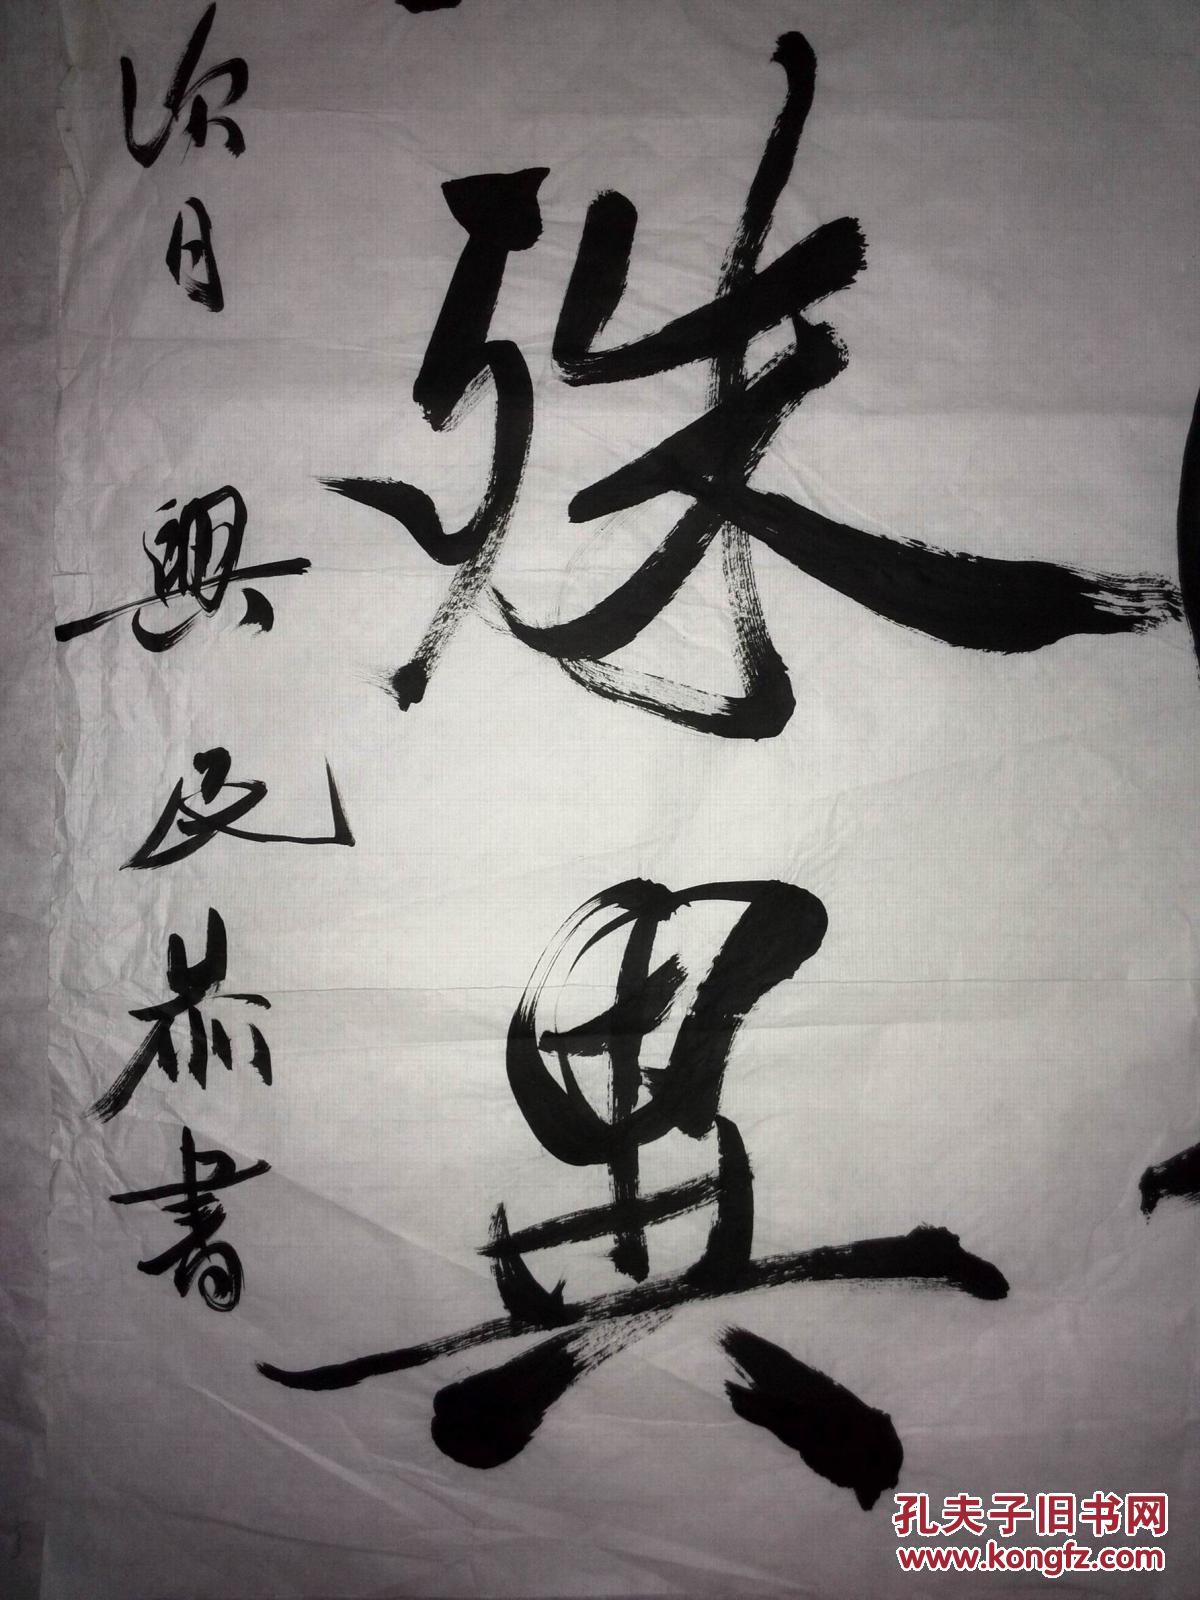 殊異
次日 興民恭書
孔夫子旧书网
www.kongfz.com